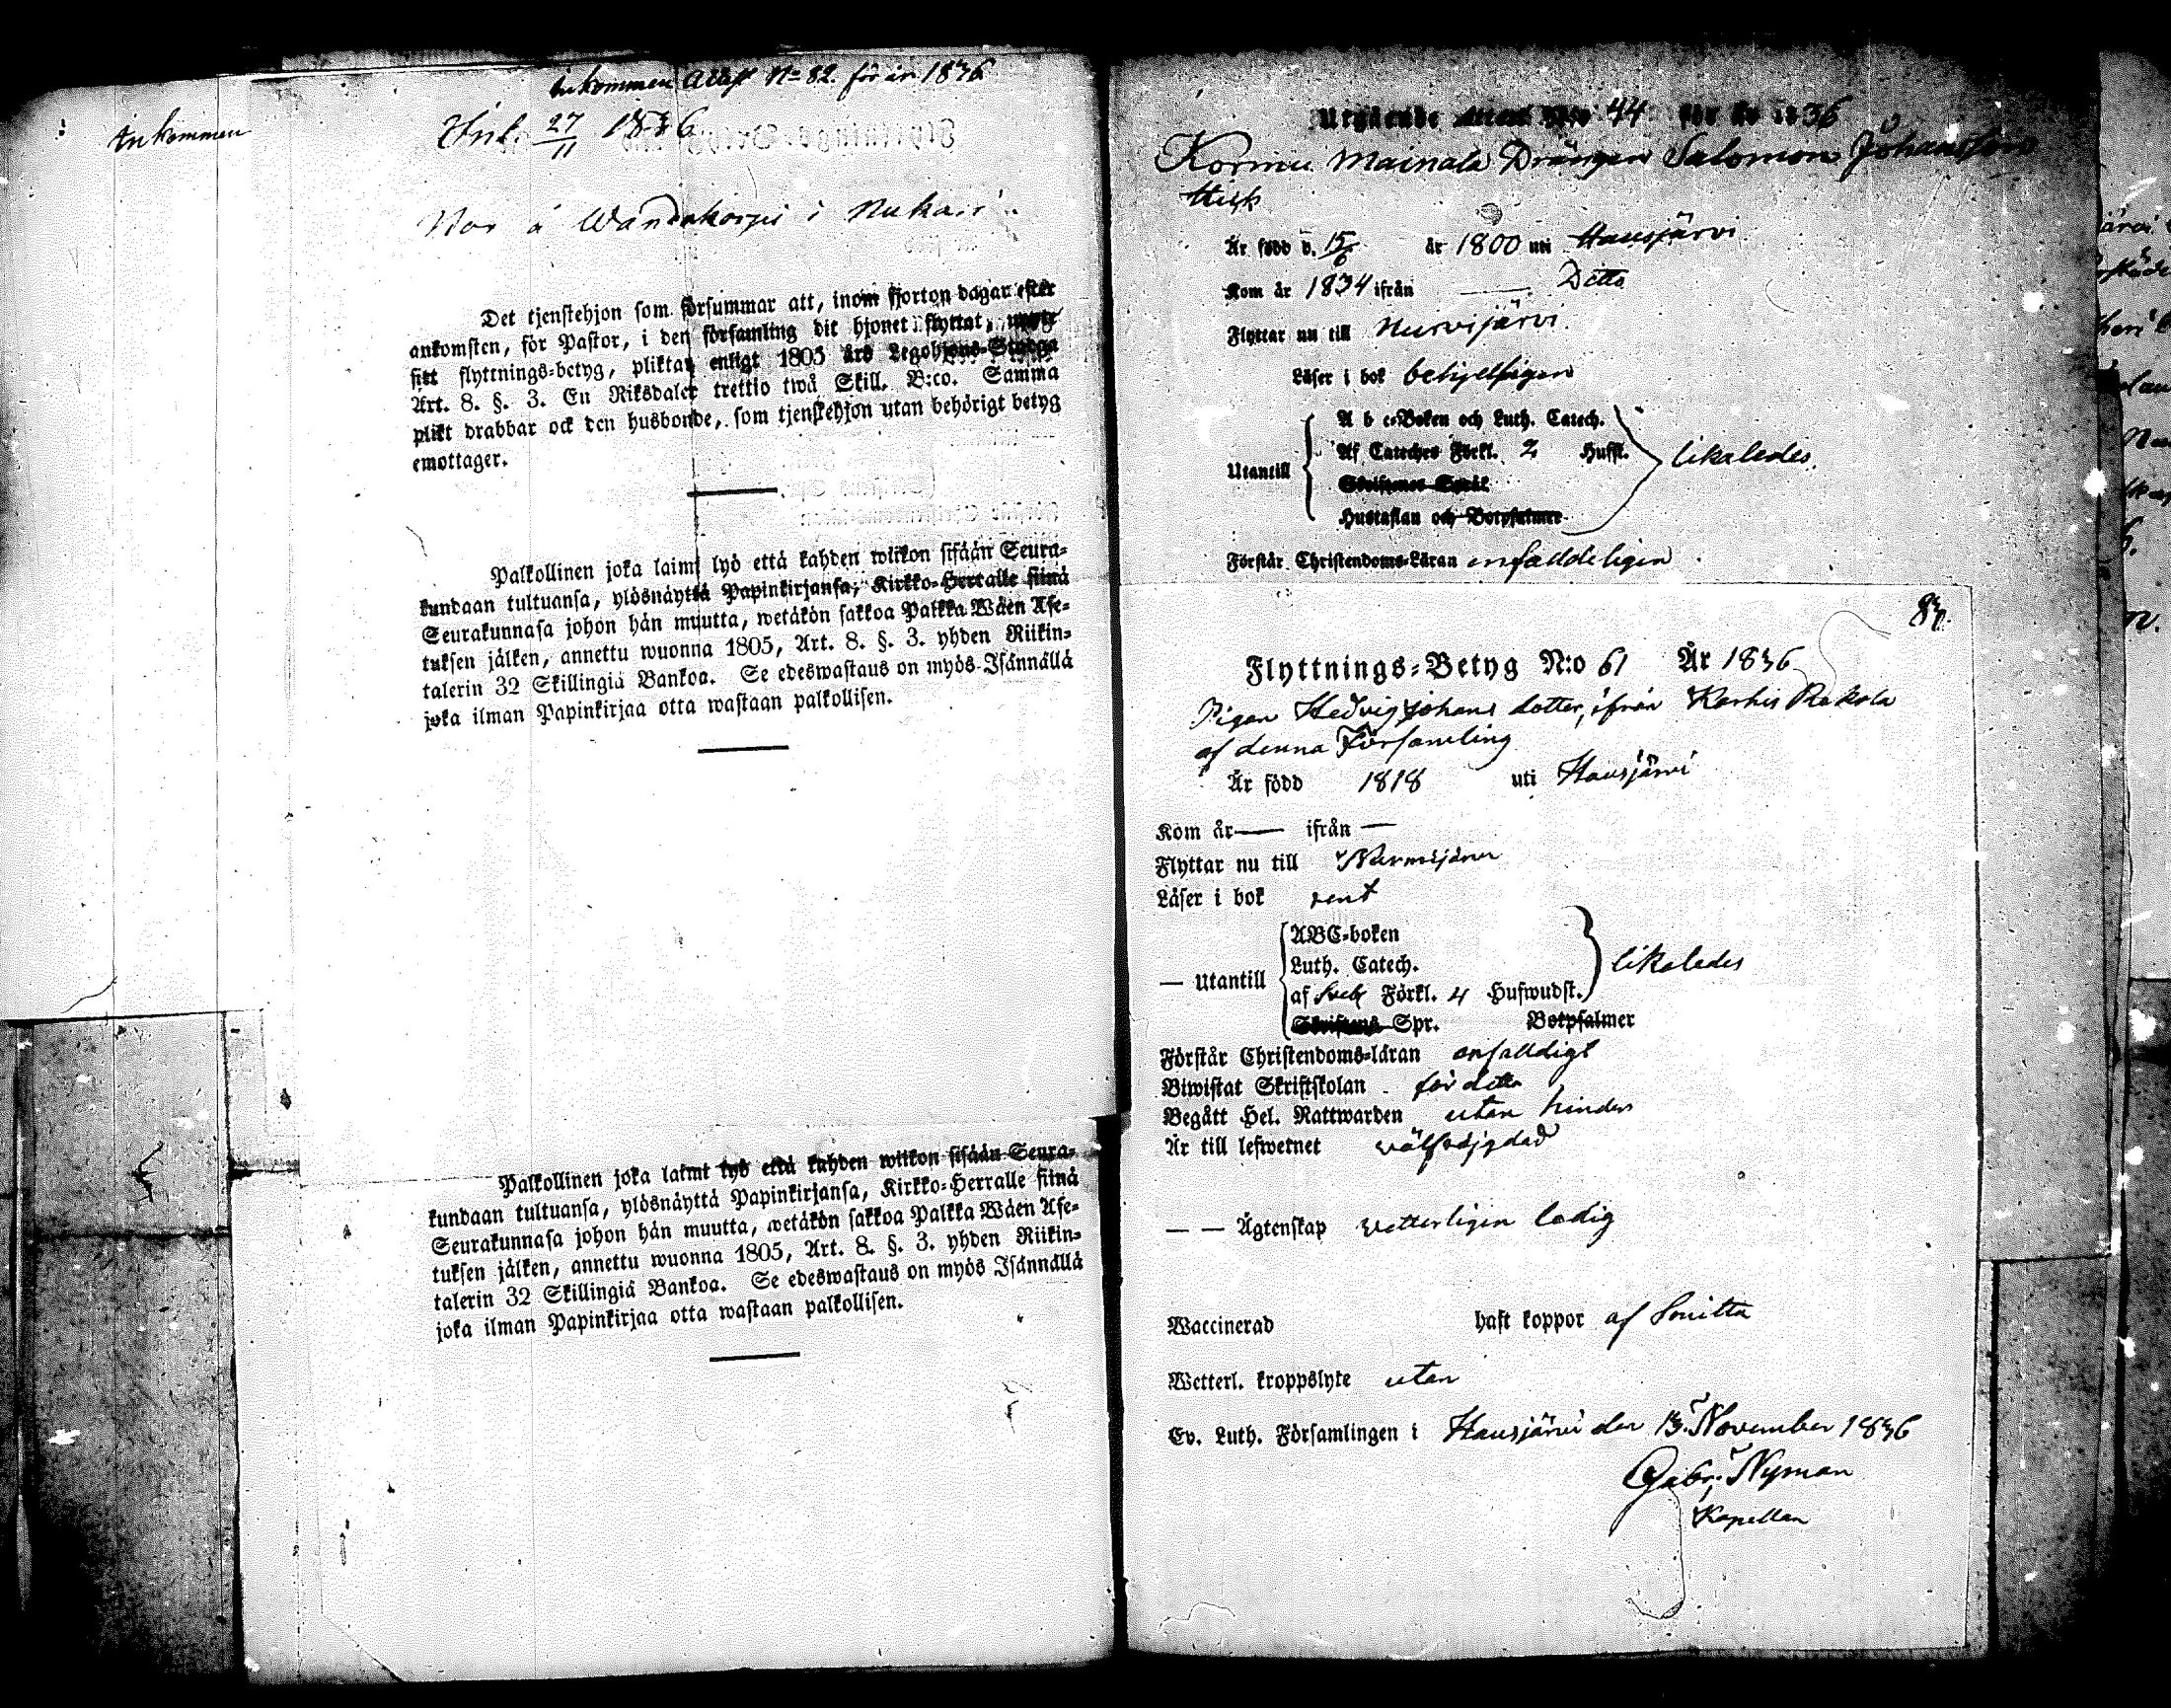 Inkommen
Inkommen Attest N= 82. för år 1836
Ink. 27/11 1836
Nor à Wandakorpi i Nukari
Det tjenstehjon som försummar att, inom fjorton dagar efter
ankomsten, för Pastor, i den församling dit hjonet flyttat,
sitt flyttnings-betyg, pliktar enligt 1805 års Legohjons-Stadga
Art. 8. §. 3. En Riksdaler trettio twå Skill. B:co. Samma
plikt drabbar ock den husbonde, som tjenstehjon utan behörigt betyg
emottager.
Palkollinen joka laimi lyö että kahden wiikon sisään Seura-
kundaan tultuansa, ylösnäyttä Papinkirjansa, Kirkko-Herralle siinä
Seurakunnasa johon hän muutta, wetäkön sakkoa Palkka Wäen Ase-
tuksen jälken, annettu wuonna 1805, Art. 8. §. 3. yhden Riikin-
talerin 32 Skillingiä Bankoa. Se edeswastaus on myös Isännällä
joka ilman Papinkirjaa otta wastaan palkollisen.
Palkollinen joka laimi lyö että kahden wiikon sisään Seura-
kundaan tultuansa, ylösnäyttä Papinkirjansa, Kirkko-Herralle siinä
Seurakunnasa johon hän muutta, wetäkön sakkoa Palkka Wäen Ase-
tuksen jälken, annettu wuonna 1805, Art. 8. §. 3. yhden Riikin-
talerin 32 Skillingiä Bankoa. Se edeswastaus on myös Isännällä
joka ilman Papinkirjaa otta wastaan palkollisen.
Utgående Attest N:o 44 för år 1836
Kormu Mainala Drängen Salomon Johansson
Är född d. 15/6 år 1800 uti Hausjärvi
Kom år 1834 ifrån Ditto
Flyttar nu till Nurmijärvi
Läser i bok behjelpligen
A b c-Boken och Luth. Catech.
Af Cateches Förkl. 2 Hufst.
Utantill
likaledes
Skriftenes Språk
Hustaflan och Botpsalmer
Förstår Christendoms-Läran enfaldeligen
82.
Flyttnings-Betyg N:o 61 År 1836
Pigan Hedvig Johans dotter, ifrån Karhis Rakola
af denna Församling
Är född 1818 uti Hausjärvi
Kom år — ifrån —
Flyttar nu till Nurmijärvi
Läser i bok rent
ABC-boken
Luth. Catech.
— Utantill
likaledes
af Sveb Förkl. 4 Hufwudst.
Skriftens Spr. Botpsalmer
Förstår Christendoms-läran enfaldigt
Biwistat Skriftskolan för detta
Begått Hel. Nattwarden utan hinder
Är till lefwernet välfräjdad
— — Ägtenskap vetterligen ledig
Waccinerad haft koppor af Smitta
Wetterl. kroppslyte utan
Ev. Luth. Församlingen i Hausjärvi den 13 November 1836
Gabr. Nyman
Kapellan